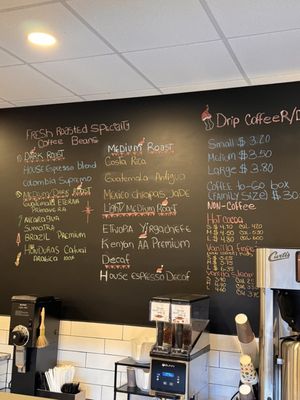 Fresh Roasted Specialty
Coffee Beans
Dark Roast
House Espresso blend
Colombia Supremo
Medium Dark Roast
Guatemala Eterna
Primavera
Nicaragua
Sumatra
Brazil
Premium
Honduras Catuai
Arabica 100%
Medium Roast
Costa Rica
Guatemala Antigua
Mexico Chiapas Jade
Light Medium Roast
Ethiopia Yirgacheffe
Kenyan AA Premium
Decaf
House Espresso Decaf
Drip Coffee R/D
Small $ 3.20
Medium $ 3.50
Large $ 3.80
Coffee to-go box
(Family Size) $30
Non-Coffee
Hot Cocoa
Vanilla
Curtis